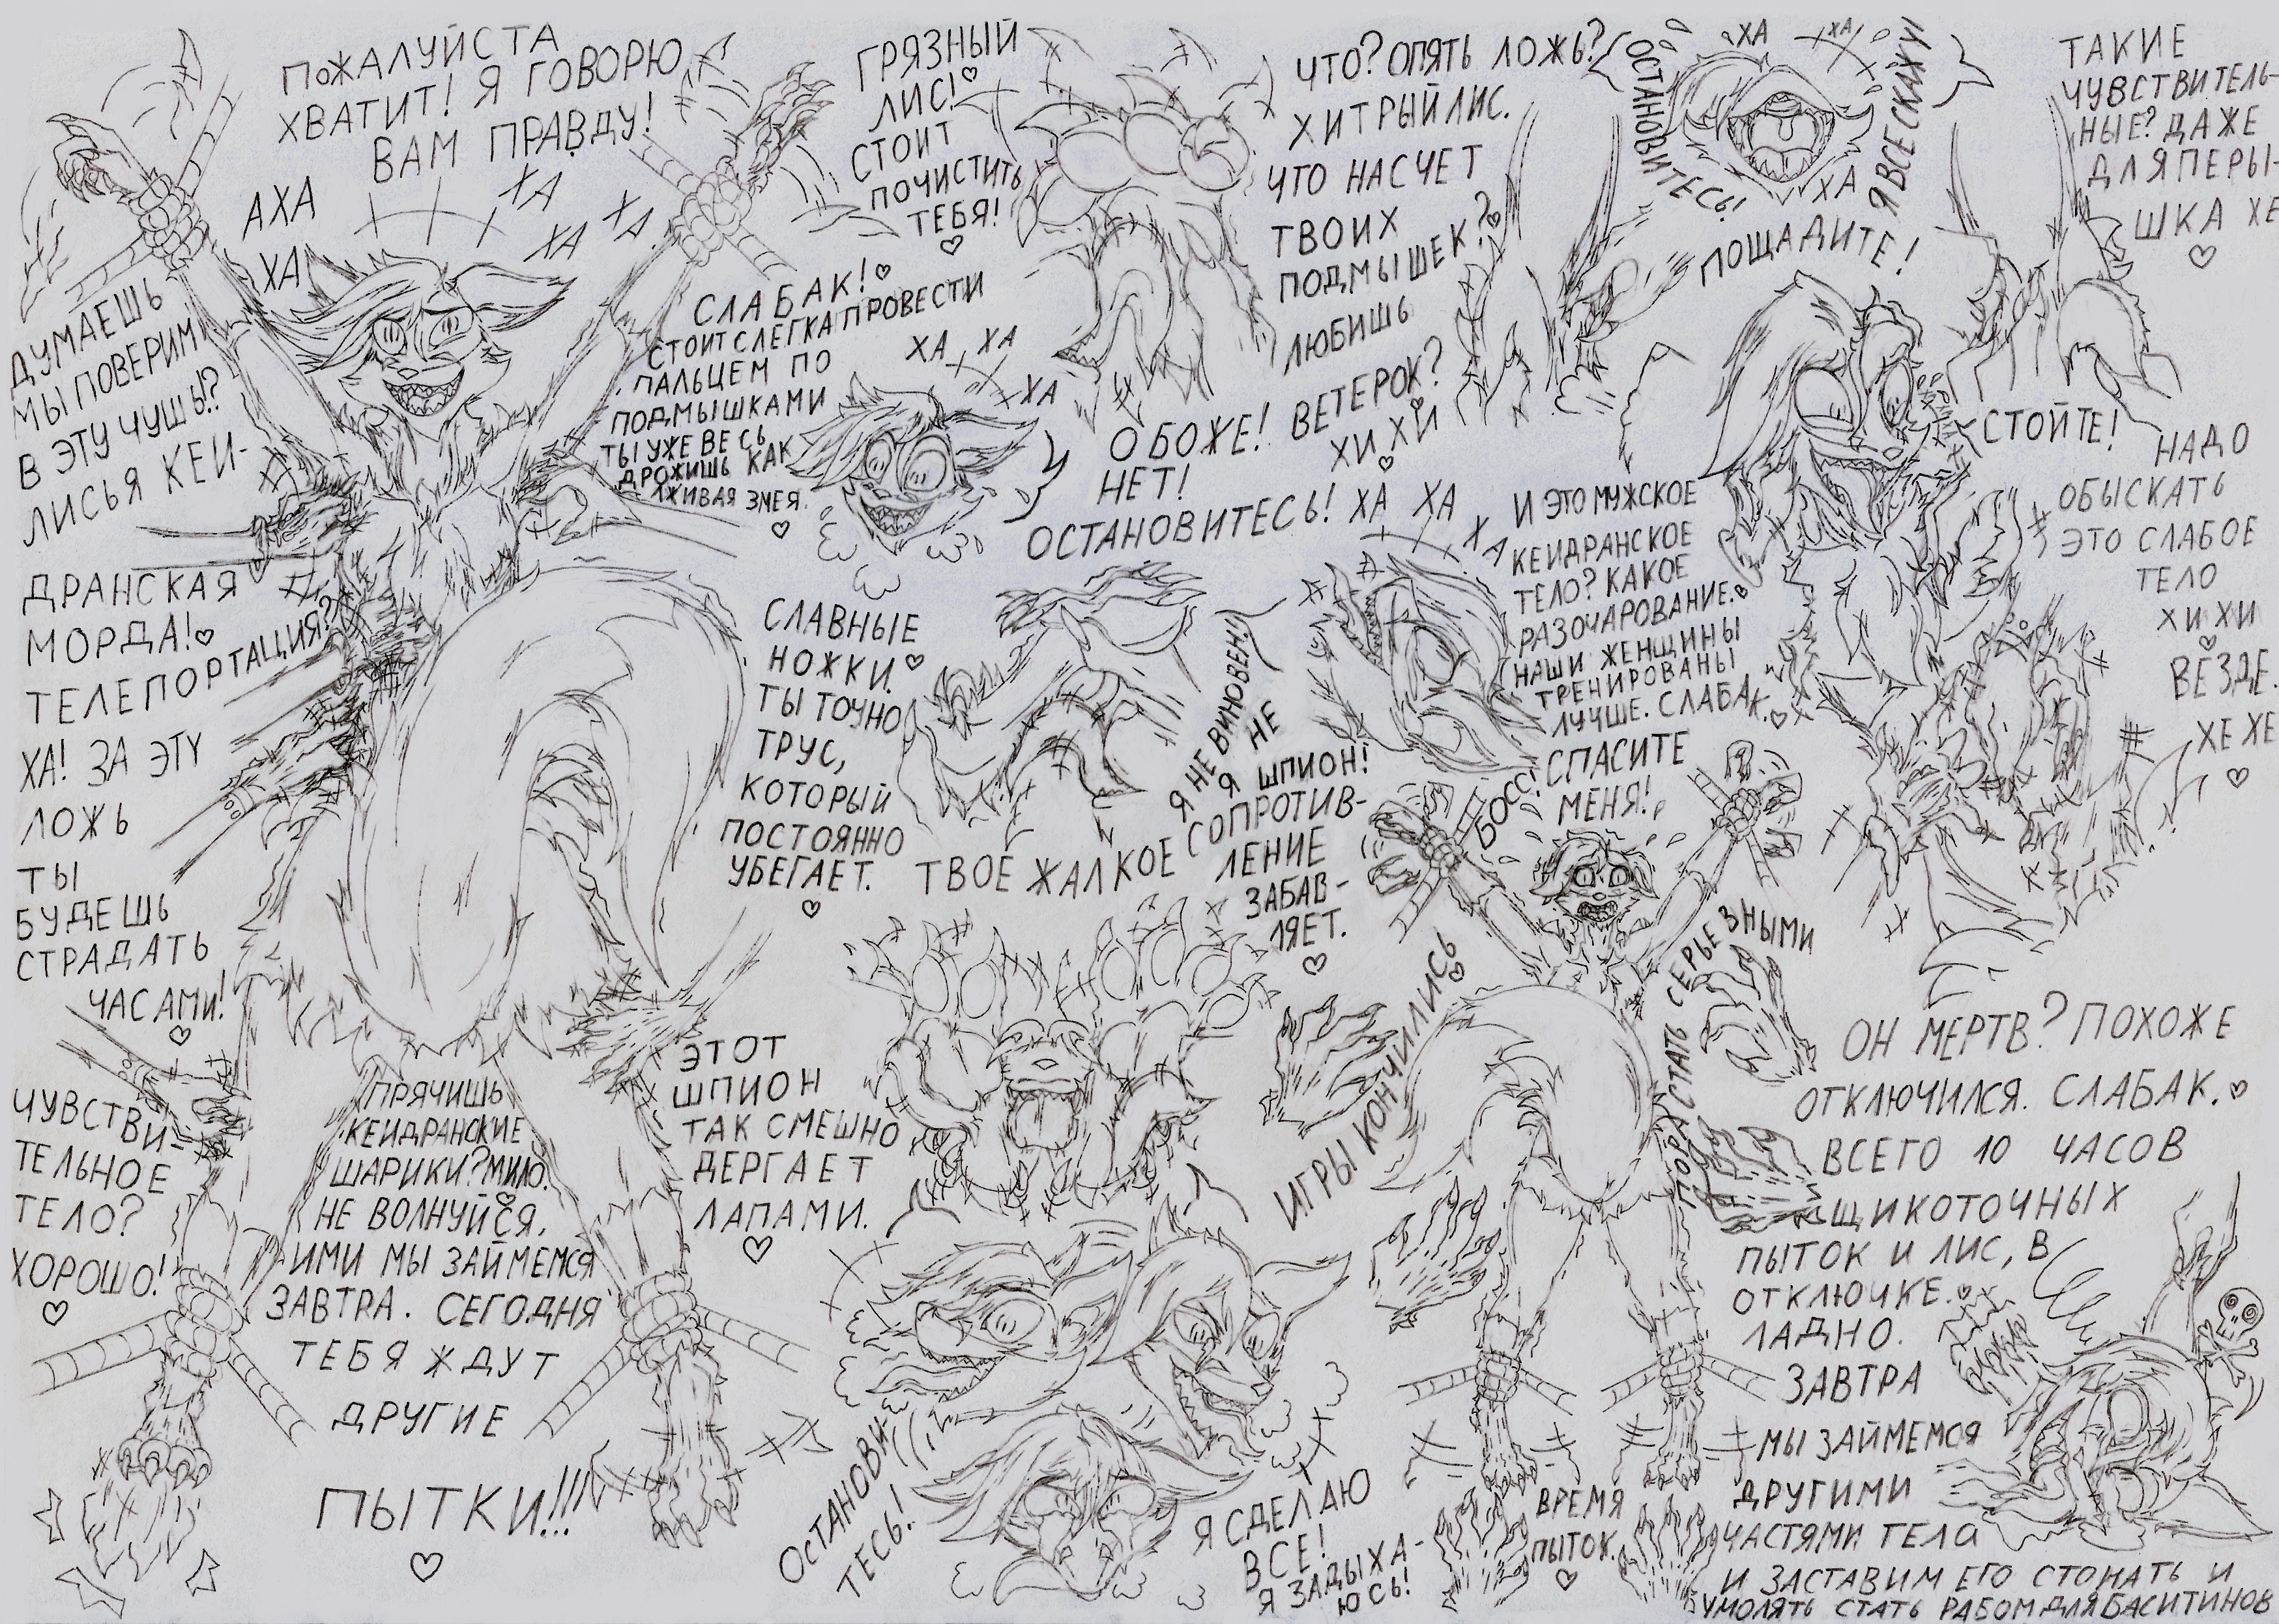 ПОЖАЛУЙСТА
ХВАТИТ! Я ГОВОРЮ
ВАМ ПРАВДУ!
АХА
ХА
ХА
ХА
ХА
ДУМАЕШЬ
МЫ ПОВЕРИМ
В ЭТУ ЧУШЬ!?
ЛИСЬЯ КЕЙ-
ДРАНСКАЯ
МОРДА!♡
ТЕЛЕПОРТАЦИЯ?
ХА! ЗА ЭТУ
ЛОЖЬ
ТЫ
БУДЕШЬ
СТРАДАТЬ
ЧАСАМИ!
♡
ЧУВСТВИ-
ТЕЛЬНОЕ
ТЕЛО?
ХОРОШО!
♡
ПРЯЧИШЬ
КЕЙДРАНСКИЕ
ШАРИКИ? МИЛО.
♡
НЕ ВОЛНУЙСЯ,
ИМИ МЫ ЗАЙМЕМСЯ
ЗАВТРА. СЕГОДНЯ
ТЕБЯ ЖДУТ
ДРУГИЕ
ПЫТКИ!!!
♡
ГРЯЗНЫЙ
ЛИС!♡
СТОИТ
ПОЧИСТИТЬ
ТЕБЯ!
♡
СЛАБАК!♡
СТОИТ СЛЕГКА ПРОВЕСТИ
ПАЛЬЦЕМ ПО
ПОДМЫШКАМИ
ТЫ УЖЕ ВЕСЬ
ДРОЖИШЬ КАК
ЛЖИВАЯ ЗМЕЯ.
♡
ХА ХА
ХА
О БОЖЕ!
НЕТ!
ОСТАНОВИТЕСЬ!
ХА ХА
ХА
СЛАВНЫЕ
НОЖКИ.♡
ТЫ ТОЧНО
ТРУС,
КОТОРЫЙ
ПОСТОЯННО
УБЕГАЕТ.
♡
Я НЕ ВИНОВЕН!
Я НЕ
ШПИОН!
ТВОЕ ЖАЛКОЕ СОПРОТИВ-
ЛЕНИЕ
ЗАБАВ-
ЛЯЕТ.
♡
ЭТОТ
ШПИОН
ТАК СМЕШНО
ДЕРГАЕТ
ЛАПАМИ.
♡
ОСТАНОВИ-
ТЕСЬ!
Я СДЕЛАЮ
ВСЕ!
Я ЗАДЫХА-
ЮСЬ!
ЧТО? ОПЯТЬ ЛОЖЬ?
ХИТРЫЙ ЛИС.
ЧТО НАСЧЕТ
ТВОИХ
ПОДМЫШЕК?♡
ЛЮБИШЬ
ВЕТЕРОК?
♡
ХИ ХИ
♡
ОСТАНОВИТЕСЬ!
ХА
ХА
ХА
Я ВСЕ СКАЖУ!
ПОЩАДИТЕ!
ТАКИЕ
ЧУВСТВИТЕЛЬ-
НЫЕ? ДАЖЕ
ДЛЯ ПЕРЫ-
ШКА ХЕ
♡
СТОЙТЕ!
НАДО
ОБЫСКАТЬ
ЭТО СЛАБОЕ
ТЕЛО
ХИ ХИ
♡
ВЕЗДЕ.
ХЕ ХЕ
♡
И ЭТО МУЖСКОЕ
КЕЙДРАНСКОЕ
ТЕЛО? КАКОЕ
РАЗОЧАРОВАНИЕ.♡
НАШИ ЖЕНЩИНЫ
ТРЕНИРОВАНЫ
ЛУЧШЕ. СЛАБАК.♡
БОСС! СПАСИТЕ
МЕНЯ!
ИГРЫ КОНЧИЛИСЬ
♡
ПОРА СТАТЬ СЕРЬЕЗНЫМИ
ВРЕМЯ
ПЫТОК.
♡
ОН МЕРТВ? ПОХОЖЕ
ОТКЛЮЧИЛСЯ. СЛАБАК.♡
ВСЕГО 10 ЧАСОВ
ЩИКОТОЧНЫХ
ПЫТОК И ЛИС, В
ОТКЛЮЧКЕ.♡
ЛАДНО.
ЗАВТРА
МЫ ЗАЙМЕМСЯ
ДРУГИМИ
ЧАСТЯМИ ТЕЛА
И ЗАСТАВИМ ЕГО СТОНАТЬ И
УМОЛЯТЬ СТАТЬ РАБОМ ДЛЯ БАСИТИНОВ